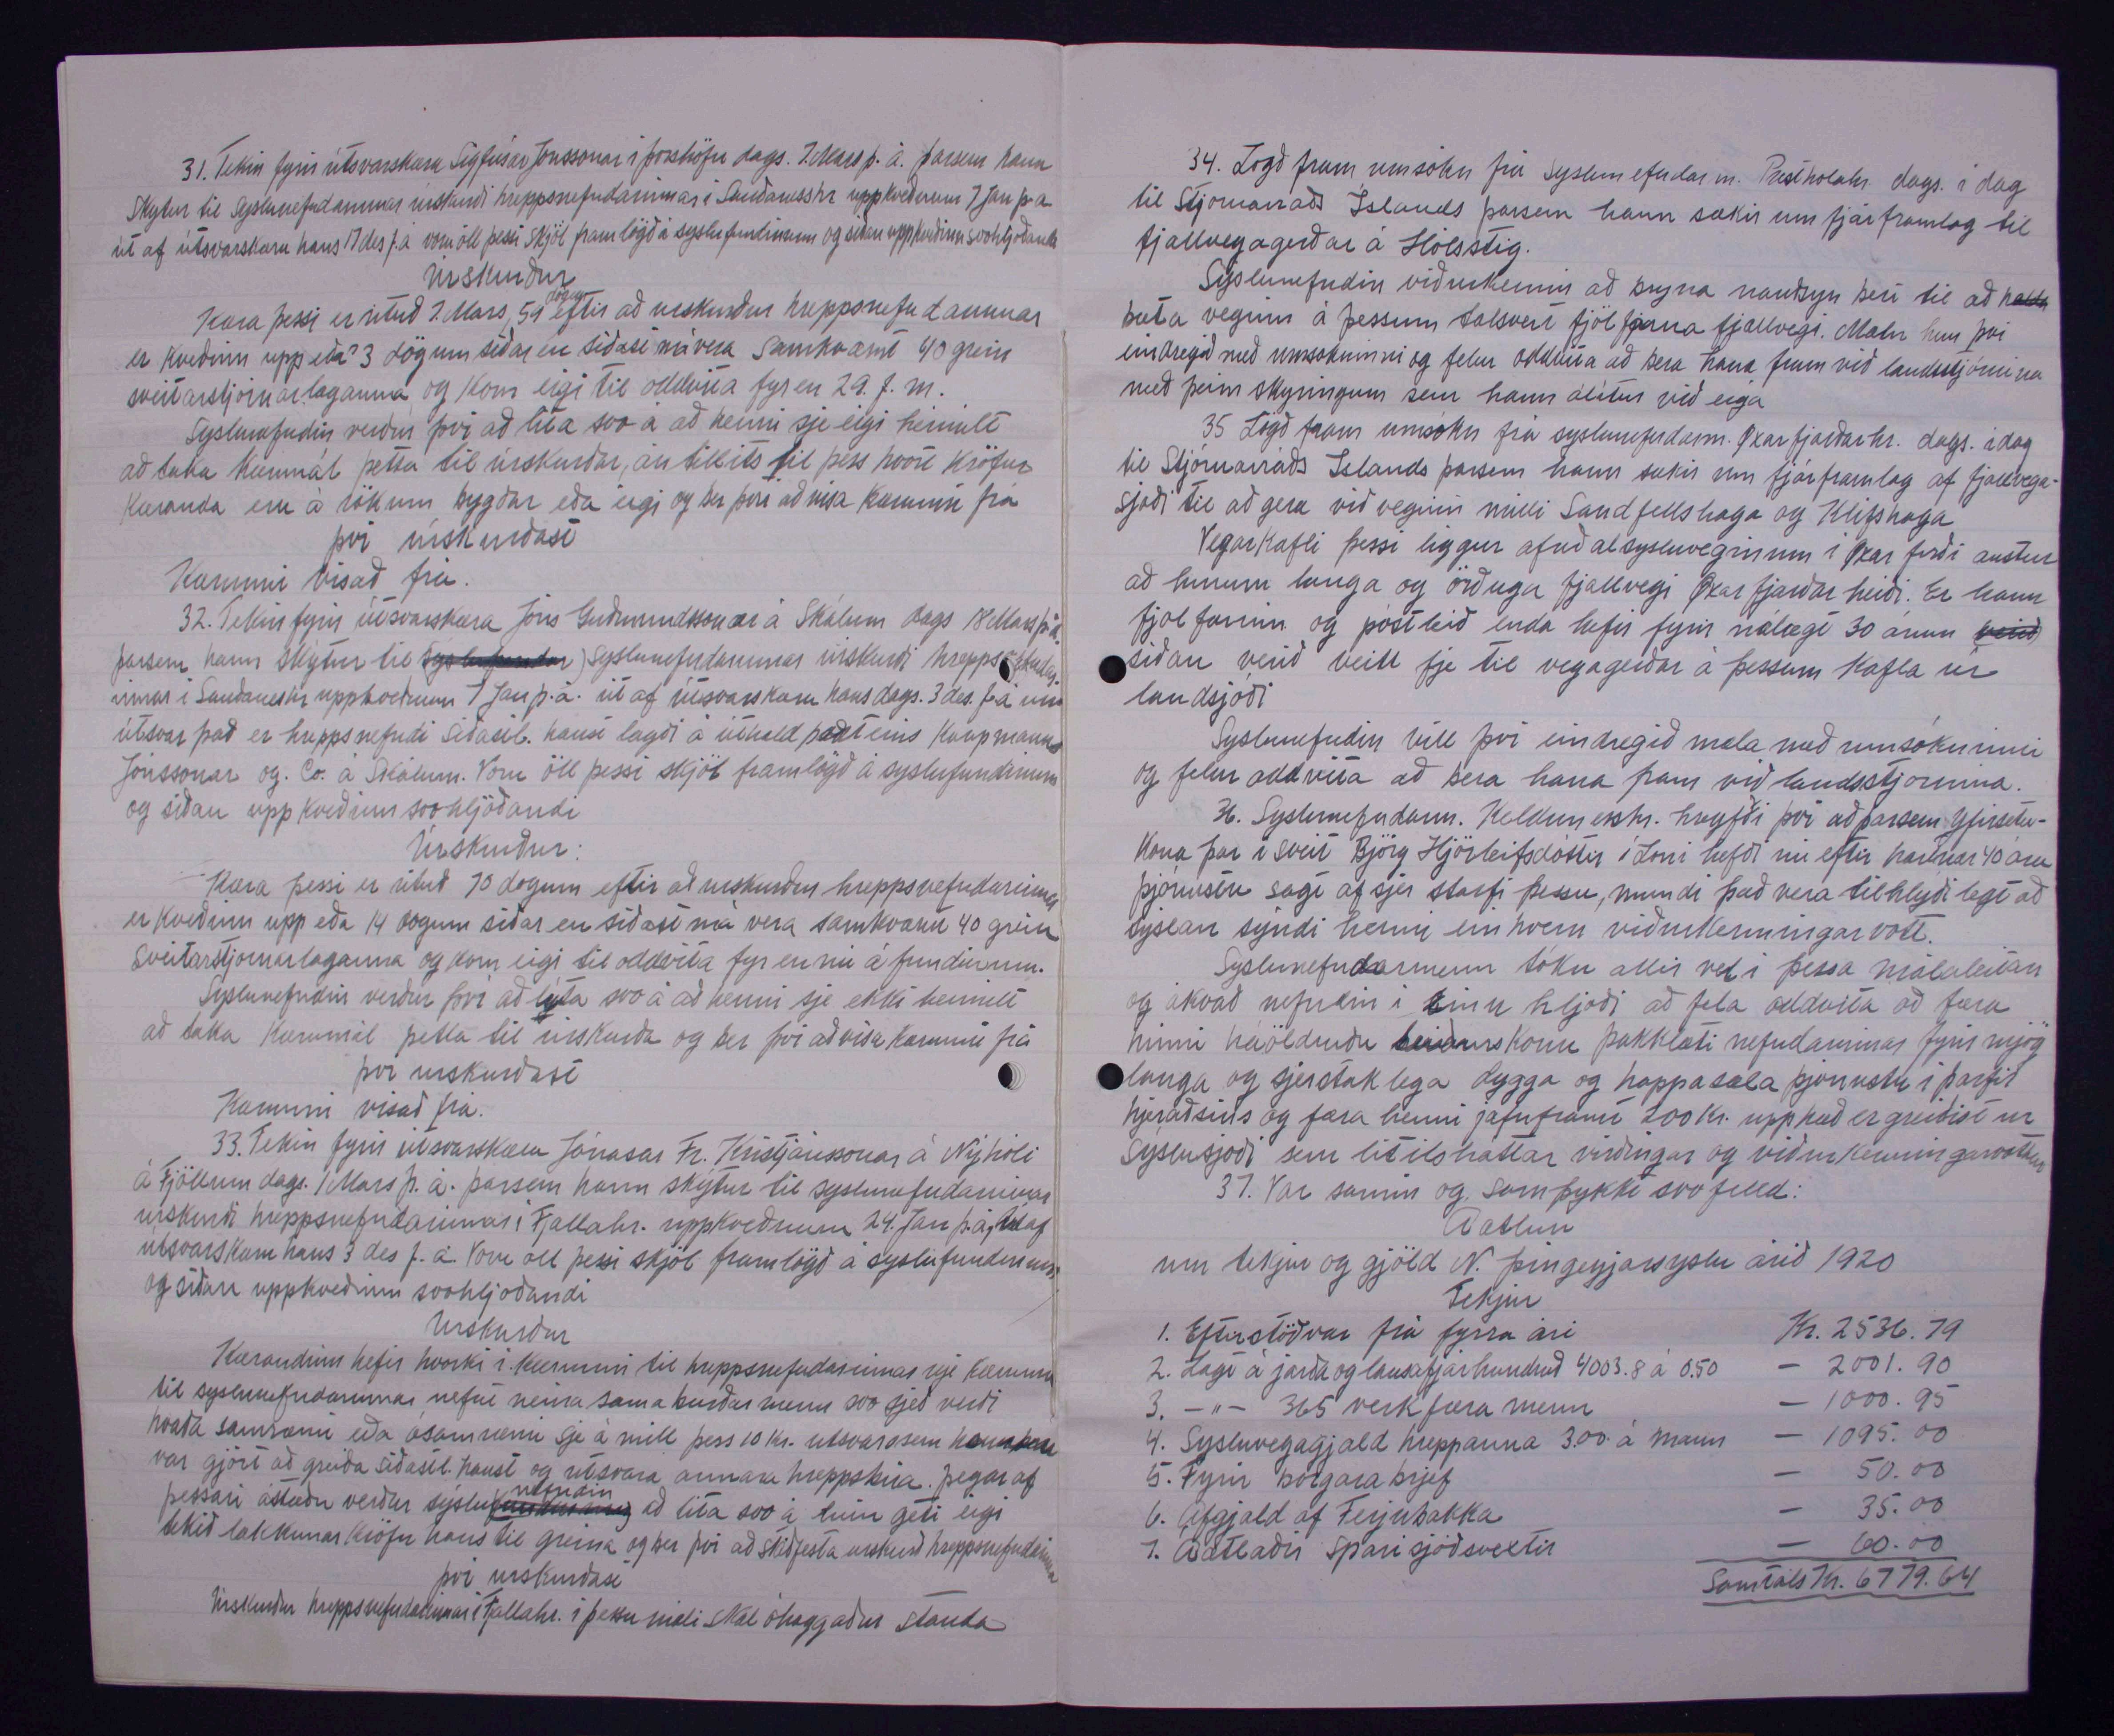 31. Tekin fyrir útsvarskæra Sigfúsar Jónssonar í Þórshöfn dags. 7. Mars þ. á. þarsem hann
skytur til Syslunefndarinnar úrskurði hreppsnefndarinnar í Sauðaneshr uppkveðnum 7 Jan þ. a
út af útsvarskæru hans 17 des f. á vóru öll þessi skjöl framlögð á syslufundinum og siðan uppkveðinn svohljóðandi
Úrskurður
Kæra þessi er rituð 7. Mars, 59 dögum eftir að urskurður hreppsnefndarinnar
er kveðinn upp eða 3 dögum síðar en síðast má vera samkvæmt 40 grein
sveitarstjórnarlaganna og kom eigi til oddvita fyr en 29. f. m.
Syslunefndin verður því að líta svo á að henni sje eigi heimilt
að taka kærumál þetta til úrskurðar, án tillits til þess hvort kröfur
kæranda eru á rökum bygðar eða eigi og ber því að vísa kærunni frá
því úrskurðast
Kærunni vísað frá.
32. Tekin fyrir útsvarskæra Jóns Guðmundssonar á Skálum dags 18 Mars þ á
þarsem hann skytur til syslunefndarinnar úrskurði hreppsnefndar-
innar í Sauðaneshr uppkveðnum 7 Jan þ. á. út af útsvarskæru hans dags. 3 des. f. á um
útsvar það er hreppsnefndi síðastl. haust lagði á úthald Kaupmanns
Jónssonar og. Co. á Skálum. Voru öll þessi skjöl framlögð á syslufundinum
og síðan uppkveðinn svohljóðandi
Úrskurður:
Kæra þessi er rituð 70 dögum eftir að urskurður hreppsnefndarinnar
er kveðinn upp eða 14 dögum síðar en síðast má vera samkvæmt 40 grein
Sveitarstjornarlaganna og kom eigi til oddvita fyr en nú á fundinum.
Syslunefndin verður því að líta svo á að henni sje ekki heimilt
að taka kærumál þetta til úrskurða og ber því að vísa kærunni frá
því urskurðast
Kærunni vísað frá.
33. Tekin fyrir útsvarskæra Jónasar Fr. Kristjánssonar á Nýhóli
á Fjöllum dags. 1 Mars þ. á. þarsem hann skýtur til syslunefndarinnar
urskurði hreppsnefndarinnar í Fjallahr. uppkveðnum 24. Jan þ. á, út af
utsvarskæru hans 3 des f. á. Voru öll þessi skjöl framlögð á syslufundinum
og síðan uppkveðinn svohljóðandi
Úrskurður
Kærandinn hefir hvorki í kærunni til hreppsnefndarinnar nje kærunni
til syslunefndarinnar nefnt neina samanburðarmenn svo sjeð verði
hvaða samræmi eða ósamræmi sje á milli þess 10 kr. utsvars sem
var gjört að greiða síðastl. haust og utsvara annara hreppsbúa. Þegar af
þessari ástæðu verður syslunefndin að líta svo á hún geti eigi
tekið lækkunarkröfu hans til greina og ber því að staðfesta urskurð hreppsnefndarinnar
því urskurðast
Úrskurður hreppsnefndarinnar í Fjallahr. í þessu máli skal óhaggaður standa
34. Lögð fram umsókn frá syslunefndar m. Presthólahr. dags. í dag
til Stjórnarráðs Íslands þarsem hann sækir um fjárframlag til
fjallvegagerðar á Hólsstíg.
Syslunefndin viðurkennir að bryna nauðsyn beri til að
bæta veginn á þessum talsvert fjölfarna fjallvegi. Mælir hún því
eindregið með umsókninni og felur oddvita að bera hana fram við landsstjórnina
með þeim skyringum sem hann álítur við eiga
35 Lögð fram umsókn frá syslunefndarm. Øxarfjarðarhr. dags. í dag
til Stjórnarráðs Íslands þarsem hann sækir um fjárframlag af fjallvega-
sjóði til að gera við veginn milli Sandfellshaga og Klifshaga
Vegarkafli þessi liggur af aðalsysluveginum í Øxarfirði austur
að hinum langa og örðuga fjallvegi Øxarfjarðarheiði. Er hann
fjölfarinn og póstleið enda hefir fyrir nálægt 30 árum
síðan verið veitt fje til vegagerðar á þessum kafla úr
landsjóði
Syslunefndin vill því eindregið mæla með umsókninni
og felur oddvita að bera hana fram við landsstjórnina.
36. Syslunefndarm. Keldunesshr. hreyfði því að þarsem Yfirsetu-
kona þar í sveit Björg Hjörleifsdóttir í Lóni hefði nú eftir hartnær 40 ára
þjónustu sagt af sjer starfi þessu, mundi það vera tilhlýðilegt að
syslan syndi henni einhvern viðurkenningarvott.
Syslunefndarmenn tóku allir vel í þessa málaleitan
og ákvað nefndin í einu hljóði að fela oddvita að færa
hinni háöldruðu heiðurskonu þakklæti nefndarinnar fyrir mjög
langa og sjerstaklega dygga og happasæla þjónustu í þarfir
hjeraðsins og færa henni jafnframt 200 Kr. upphæð er greiðist úr
Syslusjóði sem lítilsháttar virðingar og viðurkenningarvottur
37. Var samin og samþykkt svofelld:
Áætlun
um tekjur og gjöld N. Þingeyjarsyslu árið 1920
Tekjur
1. Eftirstöðvar frá fyrra ári Kr. 2536.79
2. Lagt á jarða og lausafjárhundruð 4003.8 á 0.50 – 2001.90
3. –"– 365 verkfæra menn – 1000.95
4. Sysluvegagjald hreppanna 3.00 á mann – 1095.00
5. Fyrir borgarabrjef – 50.00
6. Afgjald af Ferjubakka – 35.00
7. Áætlaðir sparisjóðsvextir – 60.00
Samtals Kr. 6779.64